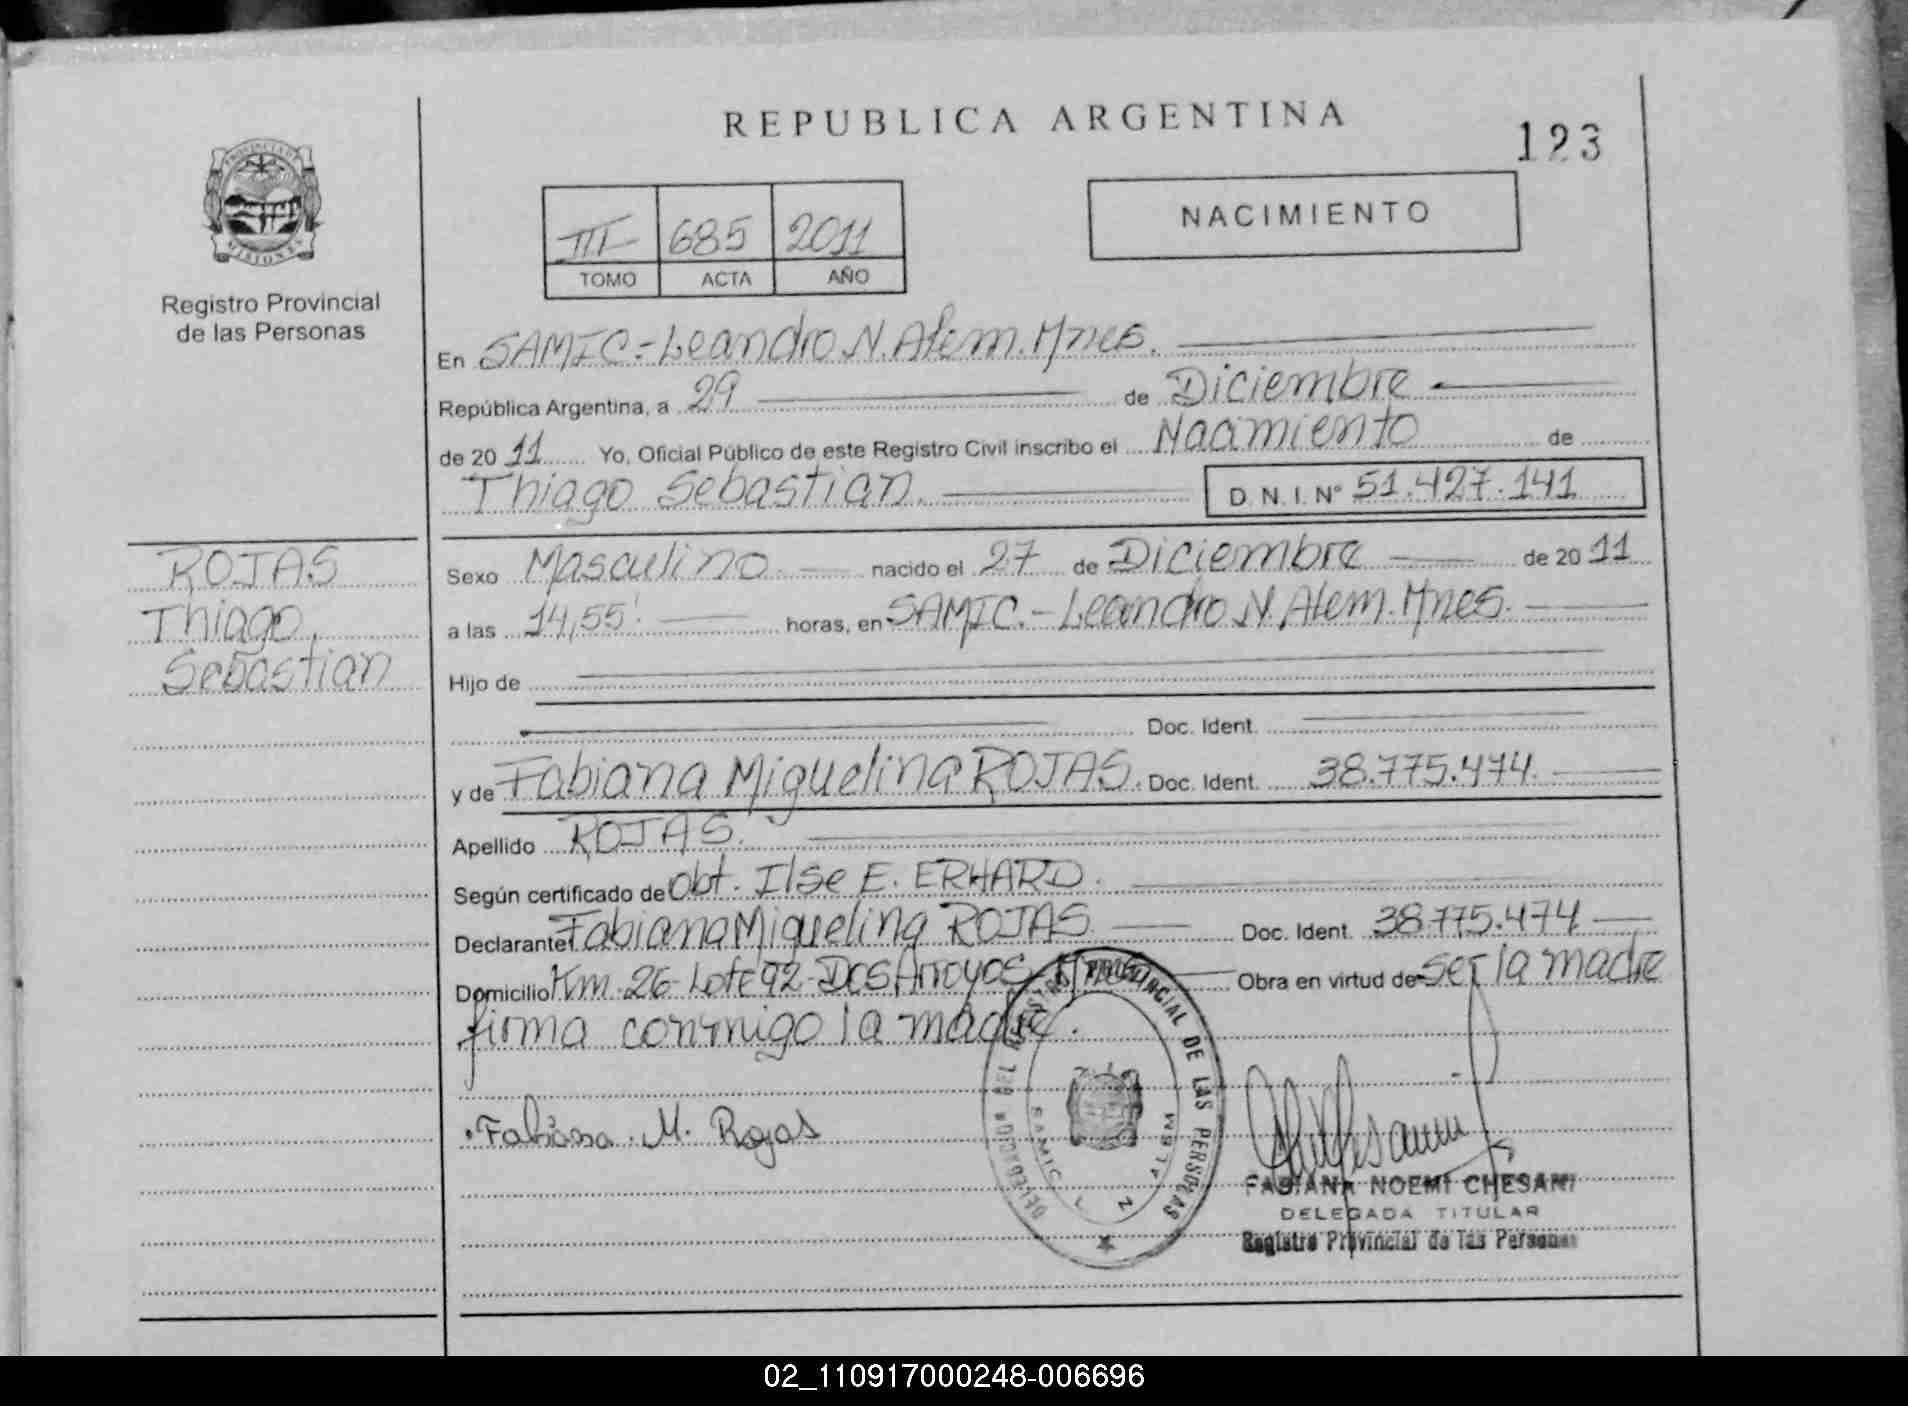 REPUBLICA ARGENTINA
123
PROVINCIA DE
MISIONES
Registro Provincial
de las Personas
III 685 2011
TOMO ACTA AÑO
NACIMIENTO
En SAMIC.-Leandro N. Alem. Mnes.
República Argentina, a 29 de Diciembre
de 2011 Yo, Oficial Público de este Registro Civil inscribo el Nacimiento de
Thiago Sebastian. D.N.I. Nº 51.427.141
ROJAS
Thiago
Sebastian
Sexo Masculino nacido el 27 de Diciembre de 2011
a las 14,55' horas, en SAMIC.- Leandro N. Alem. Mnes.
Hijo de
Doc. Ident.
y de Fabiana Miguelina ROJAS. Doc. Ident. 38.775.474.
Apellido ROJAS.
Según certificado de Obt. Ilse E. ERHARD.
Declarante Fabiana Miguelina ROJAS Doc. Ident. 38.775.474
Domicilio Km. 26-Lote 92-Dos Arroyos-Mnes Obra en virtud de ser la madre
firma conmigo la madre.
Fabiana. M. Rojas
DELEGACION DEL REGISTRO PROVINCIAL DE LAS PERSONAS
SAMIC L N ALEM
FABIANA NOEMI CHESANI
DELEGADA TITULAR
Registro Provincial de las Personas
02_110917000248-006696